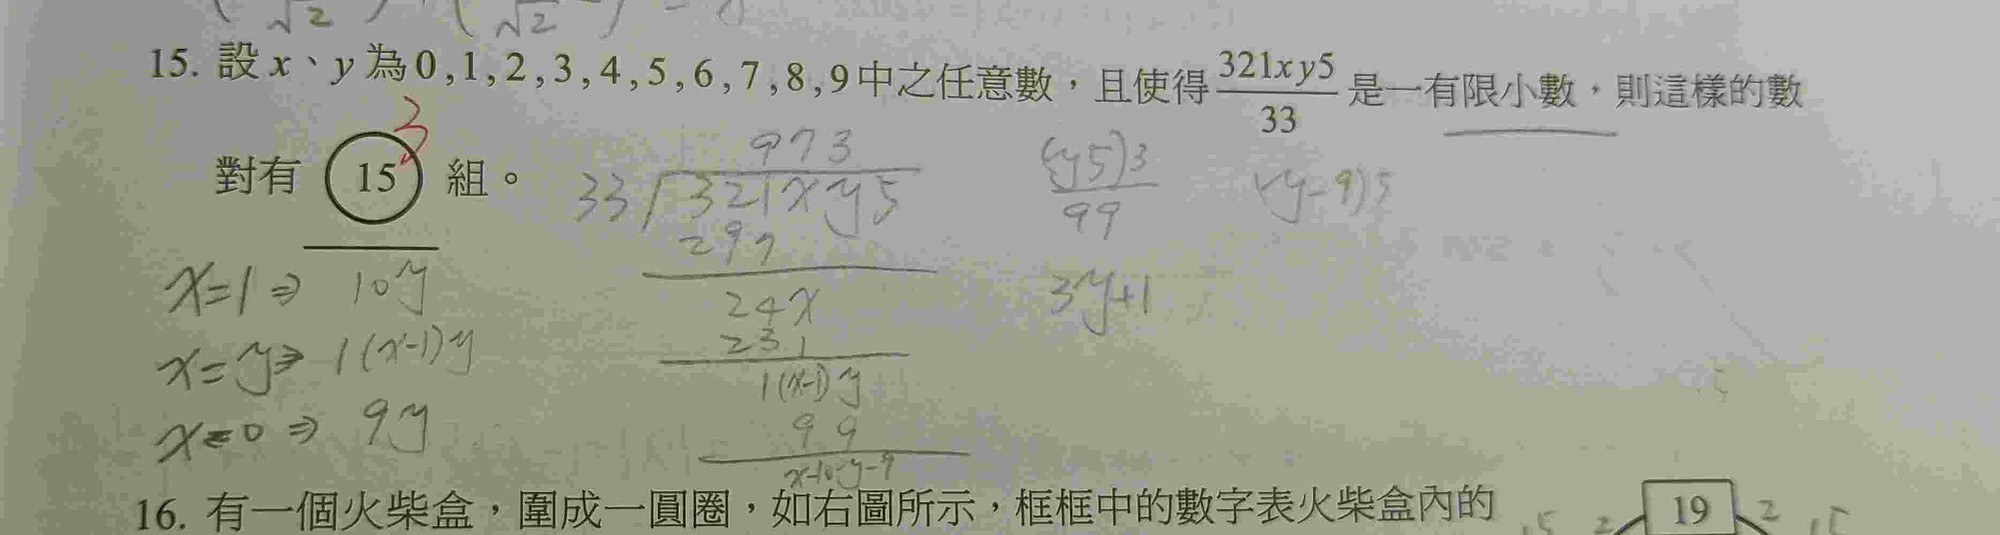 15. 設 x、y 為 0 , 1 , 2 , 3 , 4 , 5 , 6 , 7 , 8 , 9 中之任意數，且使得 321xy5/33 是一有限小數，則這樣的數
3
對有 15 組。
973
33 321xy5
297
24x
231
1(x-1)y
99
(y5)3
99
3y+1
x=1⇒ 10y
x=y⇒ 1(x-1)y
x=0⇒ 9y
16. 有一個火柴盒，圍成一圓圈，如右圖所示，框框中的數字表火柴盒內的
19